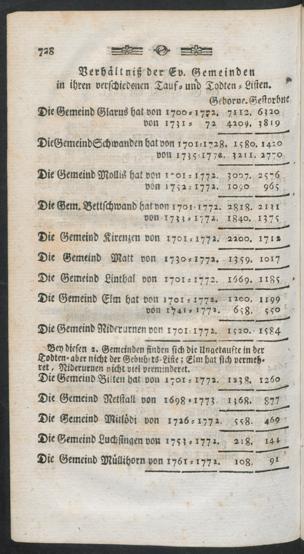 728
Verhältniß der Ev. Gemeinden
in ihren verschiedenen Tauf- und Todten-Listen.
Geborne. Gestorbne
Die Gemeind Glarus hat von 1700-1772. 7112. 6320
von 1731-72 4209. 3819
Die Gemeind Schwanden hat von 1701-1728. 1580. 1420
von 1735-1772. 3211. 2770
Die Gemeind Mollis hat von 1701-1772. 3027. 2576
von 1752-1772. 1090 965
Die Gem. Bettschwand hat von 1701-1772. 2818. 2131
von 1733-1772. 1840. 1375
Die Gemeind Kirenzen von 1701-1772. 2200. 1712
Die Gemeind Matt von 1730-1772. 1359. 1017
Die Gemeind Linthal von 1701-1772. 1669. 1185
Die Gemeind Elm hat von 1701-1772. 1200. 1199
von 1741-1772. 658. 550
Die Gemeind Niderurnen von 1701-1772. 1520. 1584
Bey diesen 2. Gemeinden finden sich die Ungetaufte in der
Todten- aber nicht der Geburts-Liste; Elm hat sich vermeh-
ret, Niderurnen nicht viel verminderet.
Die Gemeind Bilten hat von 1701-1772. 1238. 1260
Die Gemeind Netstall von 1698-1773. 1368. 877
Die Gemeind Mitlödi von 1726-1772. 558. 469
Die Gemeind Luchsingen von 1753-1772. 218. 144
Die Gemeind Müllihorn von 1761-1772. 108. 91